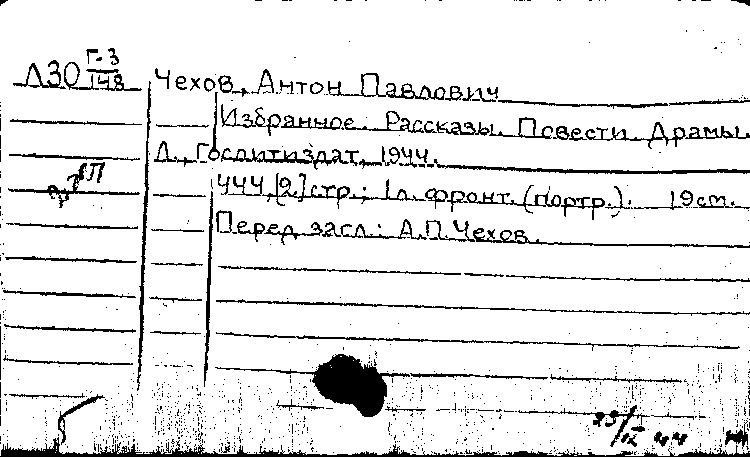 Г-3
Л30 148 Чехов, Антон Павлович
Избранное. Рассказы. Повести. Драмы.
Л., Гослитиздат, 1944.
444, [2] стр.; 1 л. фронт. (портр.). 19 см.
Перед загл.: А.П. Чехов.
23/IX 44